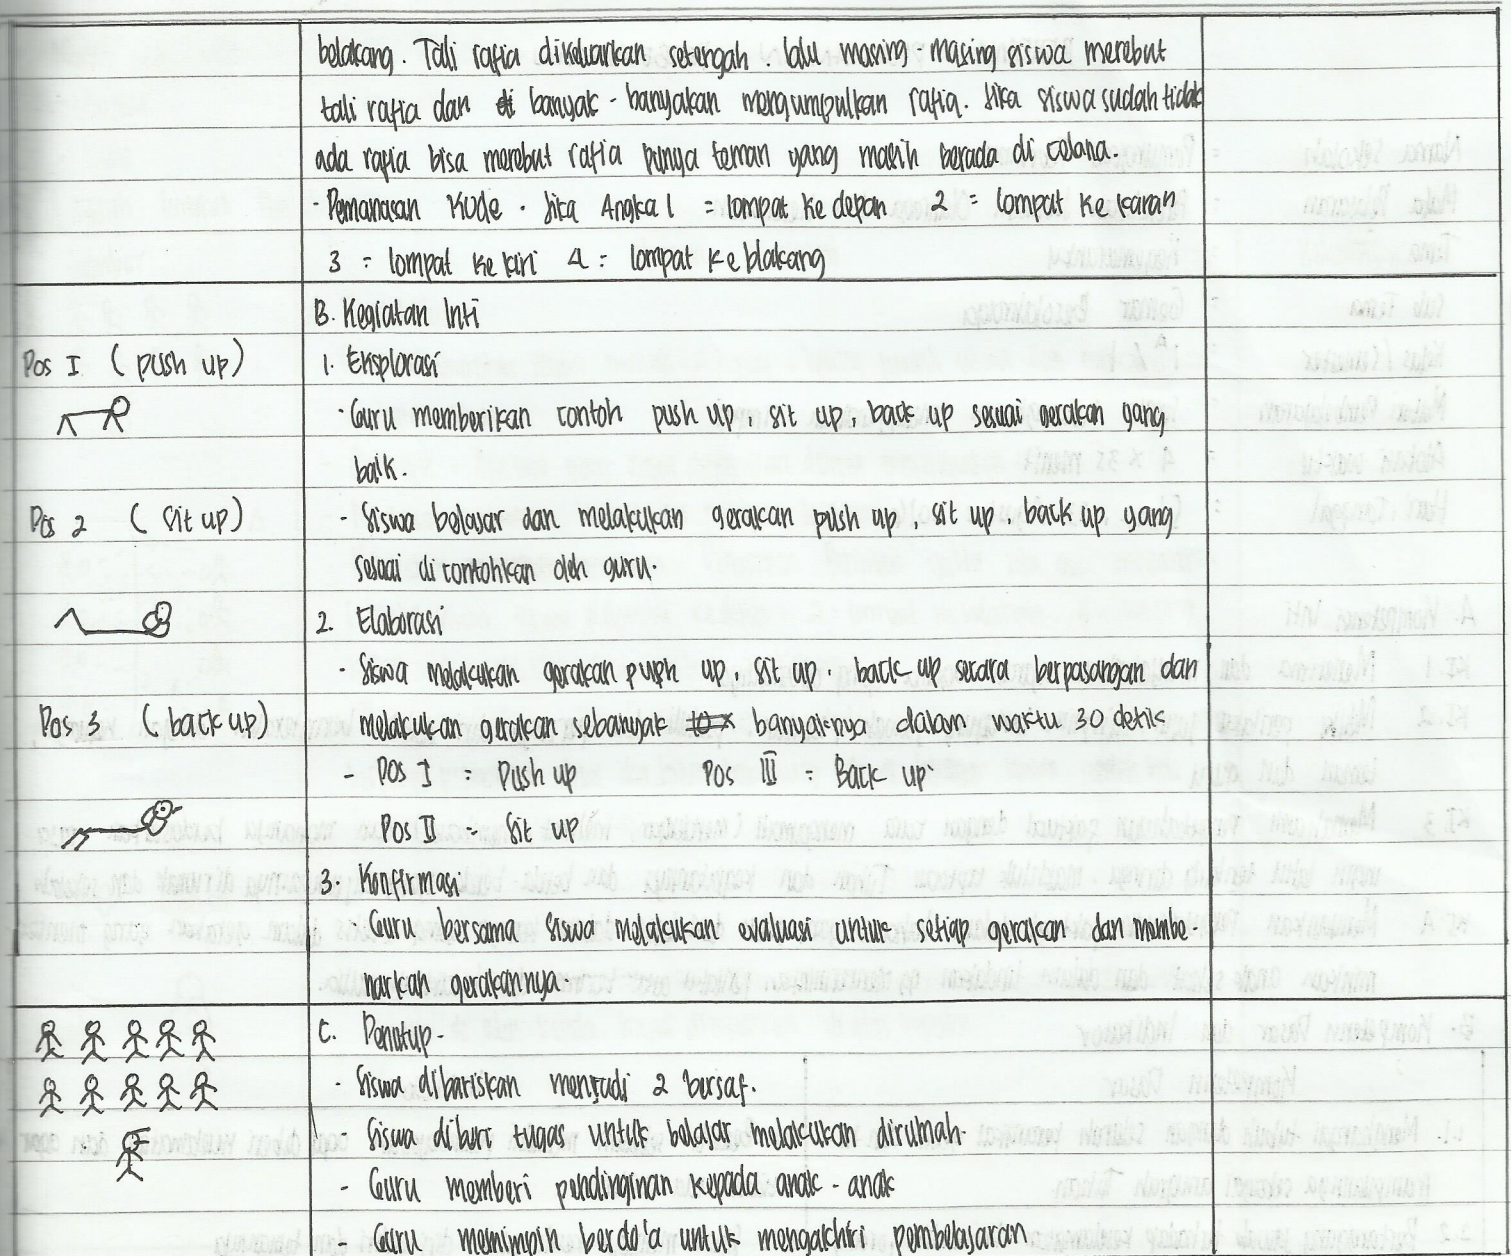 belakang. Tali rafia dikeluarkan setengah. lalu masing-masing siswa merebut
tali rafia dan banyak-banyakan mengumpulkan rafia. Jika siswa sudah tidak
ada rafia bisa merebut rafia punya teman yang masih berada di celana.
- Pemanasan Kode. Jika Angka 1 = lompat ke depan 2 = lompat ke kanan
3 = lompat ke kiri 4 = lompat ke blakang
B. Kegiatan Inti
Pos I (push up)
1. Eksplorasi
- Guru memberikan contoh push up, sit up, back up sesuai gerakan yang
baik.
Pos 2 (sit up)
- Siswa belajar dan melakukan gerakan push up, sit up, back up yang
sesuai di contohkan oleh guru.
2. Elaborasi
- Siswa melakukan gerakan push up, sit up, back up secara berpasangan dan
Pos 3 (back up)
melakukan gerakan sebanyak banyaknya dalam waktu 30 detik
- Pos I = Push up Pos III = Back up
Pos II = Sit up
3. Konfirmasi
- Guru bersama siswa melakukan evaluasi untuk setiap gerakan dan membe-
narkan gerakannya
C. Penutup.
- Siswa dibariskan menjadi 2 bersaf.
- Siswa diberi tugas untuk belajar melakukan dirumah.
- Guru memberi pendinginan kepada anak-anak
- Guru memimpin berdo'a untuk mengakhiri pembelajaran